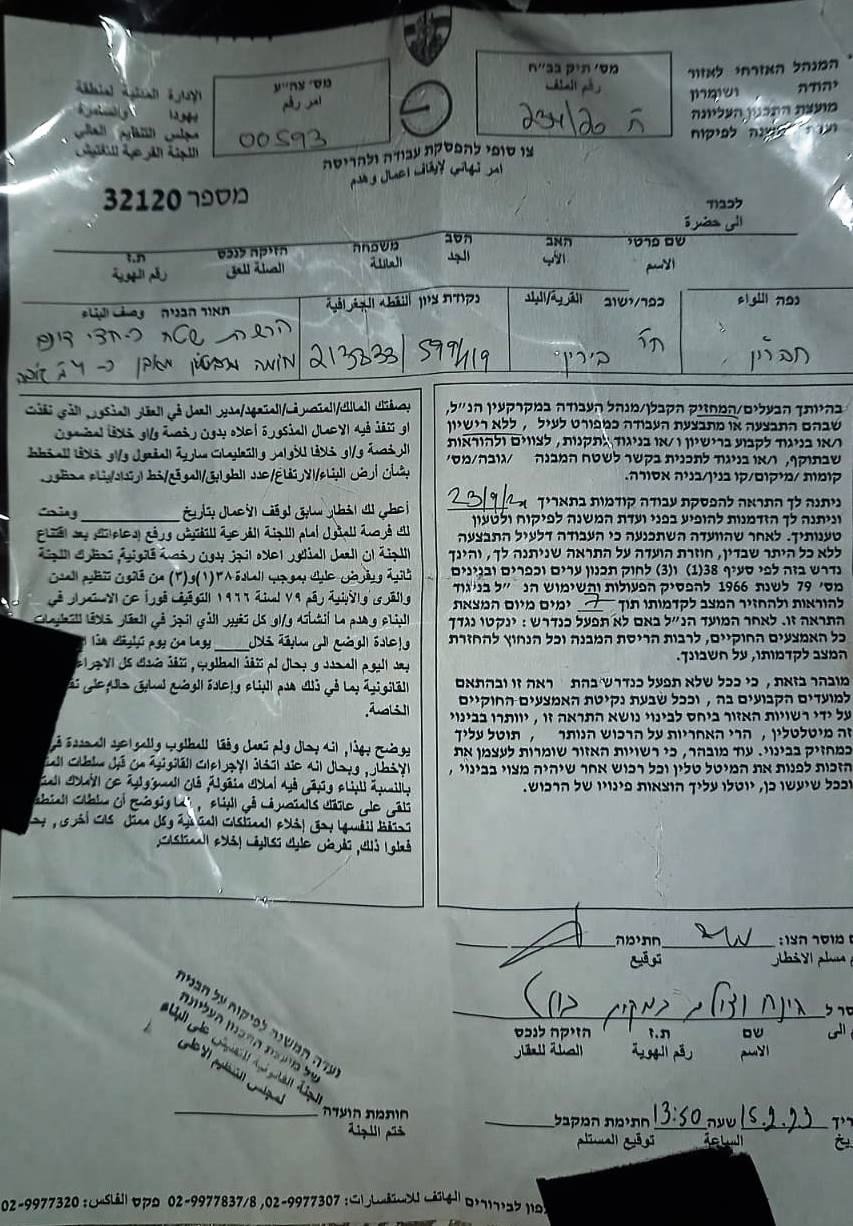 המנהל האזרחי לאזור
יהודה ושומרון
מועצת התכנון העליונה
ועדת המשנה לפיקוח
מס׳ תיק בב״ח
رقم الملف
ח 234/20
מס׳ צה״ע
امر رقم
00593
الإدارة المدنية لمنطقة
يهودا والسامرة
مجلس التنظيم العالي
اللجنة الفرعية للتفتيش
צו סופי להפסקת עבודה ולהריסה
امر نهائي لإيقاف اعمال وهدم
מספר 32120
לכבוד
الى حضرة
שם פרטי האב הסב משפחה הזיקה לנכס ת.ז
الاسم الأب الجد العائلة الصلة للعق رقم الهوية
נפה اللواء כפר/ישוב القرية/البلد נקודת ציון النقطه الجغرافية תאור הבניה وصف البناء
חברון
ח׳ בירין
213833 / 599419
הכשרת שטח כ-חצי דונם
חומה
בהיותך הבעלים/המחזיק הקבלן/מנהל העבודה במקרקעין הנ״ל,
שבהם התבצעה או מתבצעת העבודה כמפורט לעיל, ללא רישיון
ו/או בניגוד לקבוע ברישיון ו/או בניגוד לתקנות, לצווים ולהוראות
שבתוקף, ו/או בניגוד לתכנית בקשר לשטח המבנה /גובה/מס׳
קומות /מיקום/קו בנין/בניה אסורה.
ניתנה לך התראה להפסקת עבודה קודמות בתאריך 23/9/20
וניתנה לך הזדמנות להופיע בפני ועדת המשנה לפיקוח ולטעון
טענותיך. לאחר שהוועדה השתכנעה כי העבודה דלעיל התבצעה
ללא כל היתר שבדין, חוזרת הועדה על התראה שניתנה לך, והינך
נדרש בזה לפי סעיף 38(1) ו(3) לחוק תכנון ערים וכפרים ובנינים
מס׳ 79 לשנת 1966 להפסיק הפעולות והשימוש הנ ״ל בניגוד
להוראות ולהחזיר המצב לקדמותו תוך 7 ימים מיום המצאת
התראה זו. לאחר המועד הנ״ל באם לא תפעל כנדרש: ינקטו נגדך
כל האמצעים החוקיים, לרבות הריסת המבנה וכל הנחוץ להחזרת
המצב לקדמותו, על חשבונך.
מובהר בזאת, כי ככל שלא תפעל כנדרש בהת ראה זו ובהתאם
למועדים הקבועים בה, וככל שבעת נקיטת האמצעים החוקיים
על ידי רשויות האזור ביחס לבינוי נושא התראה זו, יוותרו בבינוי
זה מיטלטלין, הרי האחריות על הרכוש הנותר, תוטל עליך
כמחזיק בבינוי. עוד מובהר, כי רשויות האזור שומרות לעצמן את
הזכות לפנות את המיטל טלין וכל רכוש אחר שיהיה מצוי בבינוי,
וככל שיעשו כן, יוטלו עליך הוצאות פינויו של הרכוש.
بصفتك المالك/المتصرف/المتعهد/مدير العمل في العقار المذكور, الذي نفذت
او تنفذ فيه الاعمال المذكورة أعلاه بدون رخصة و/او خلافا لمضمون
الرخصة و/او خلافا للأوامر والتعليمات سارية المفعول و/او خلافا للمخطط
بشأن أرض البناء/الارتفاع/عدد الطوابق/الموقع/خط ارتداد/بناء محظور.
أعطي لك اخطار سابق لوقف الأعمال بتأريخ ________ ومنحت
لك فرصة للمثول أمام اللجنة الفرعية للتفتيش ورفع إدعاءاتك, بعد اقتناع
اللجنة ان العمل المذكور اعلاه انجز بدون رخصة قانونية, تحظرك اللجنة
ثانية ويفرض عليك بموجب المادة ٣٨(١)و(٣) من قانون تنظيم المدن
والقرى والأبنية رقم ٧٩ لسنة ١٩٦٦ التوقيف فوراً عن الاستمرار في
البناء وهدم ما أنشأته و/او كل تغيير الذي انجز في العقار خلافا للتعليمات
وإعادة الوضع الى سابقة خلال____ يوما من يوم تبليغك هذا
بعد اليوم المحدد و بحال لم تنفذ المطلوب, تنفذ ضدك كل الاجراء
القانونية بما في ذلك هدم البناء وإعادة الوضع لسابق حاله,على
الخاصة.
يوضح بهذا, انه بحال ولم تعمل وفقا للمطلوب وللمواعيد المحددة في
الإخطار, وبحال انه عند اتخاذ الإجراءات القانونية من قبل سلطات
بالنسبة للبناء وتبقى فيه أملاك منقولة, فان المسؤولية عن الأملاك
تلقى على عاتقك كالمتصرف في البناء, ونوضح أن سلطات
تحتفظ لنفسها بحق إخلاء الممتلكات وكل ممتل كات أخرى,
فعلوا ذلك, تفرض عليك تكاليف إخلاء الممتلكات.
מוסר הצו: חתימה
مسلم الاخطار توقيع
הונח וצולם במקום
שם ת.ז הזיקה לנכס
الاسم رقم الهوية الصلة للعقار
15.2.23 שעה 13:50 חתימת המקבל
الساعة توقيع المستلم
ועדה המשנה לפיקוח על הבניה
של מועצת התכנון העליונה
الجنة القانونية للتفتيش على البناء
لمجلس التنظيم الاعلى
חותמת הועדה
ختم اللجنة
לבירורים الهاتف للاستفسارات: 02-9977307, 02-9977837/8 פקס الفاكس: 02-9977320